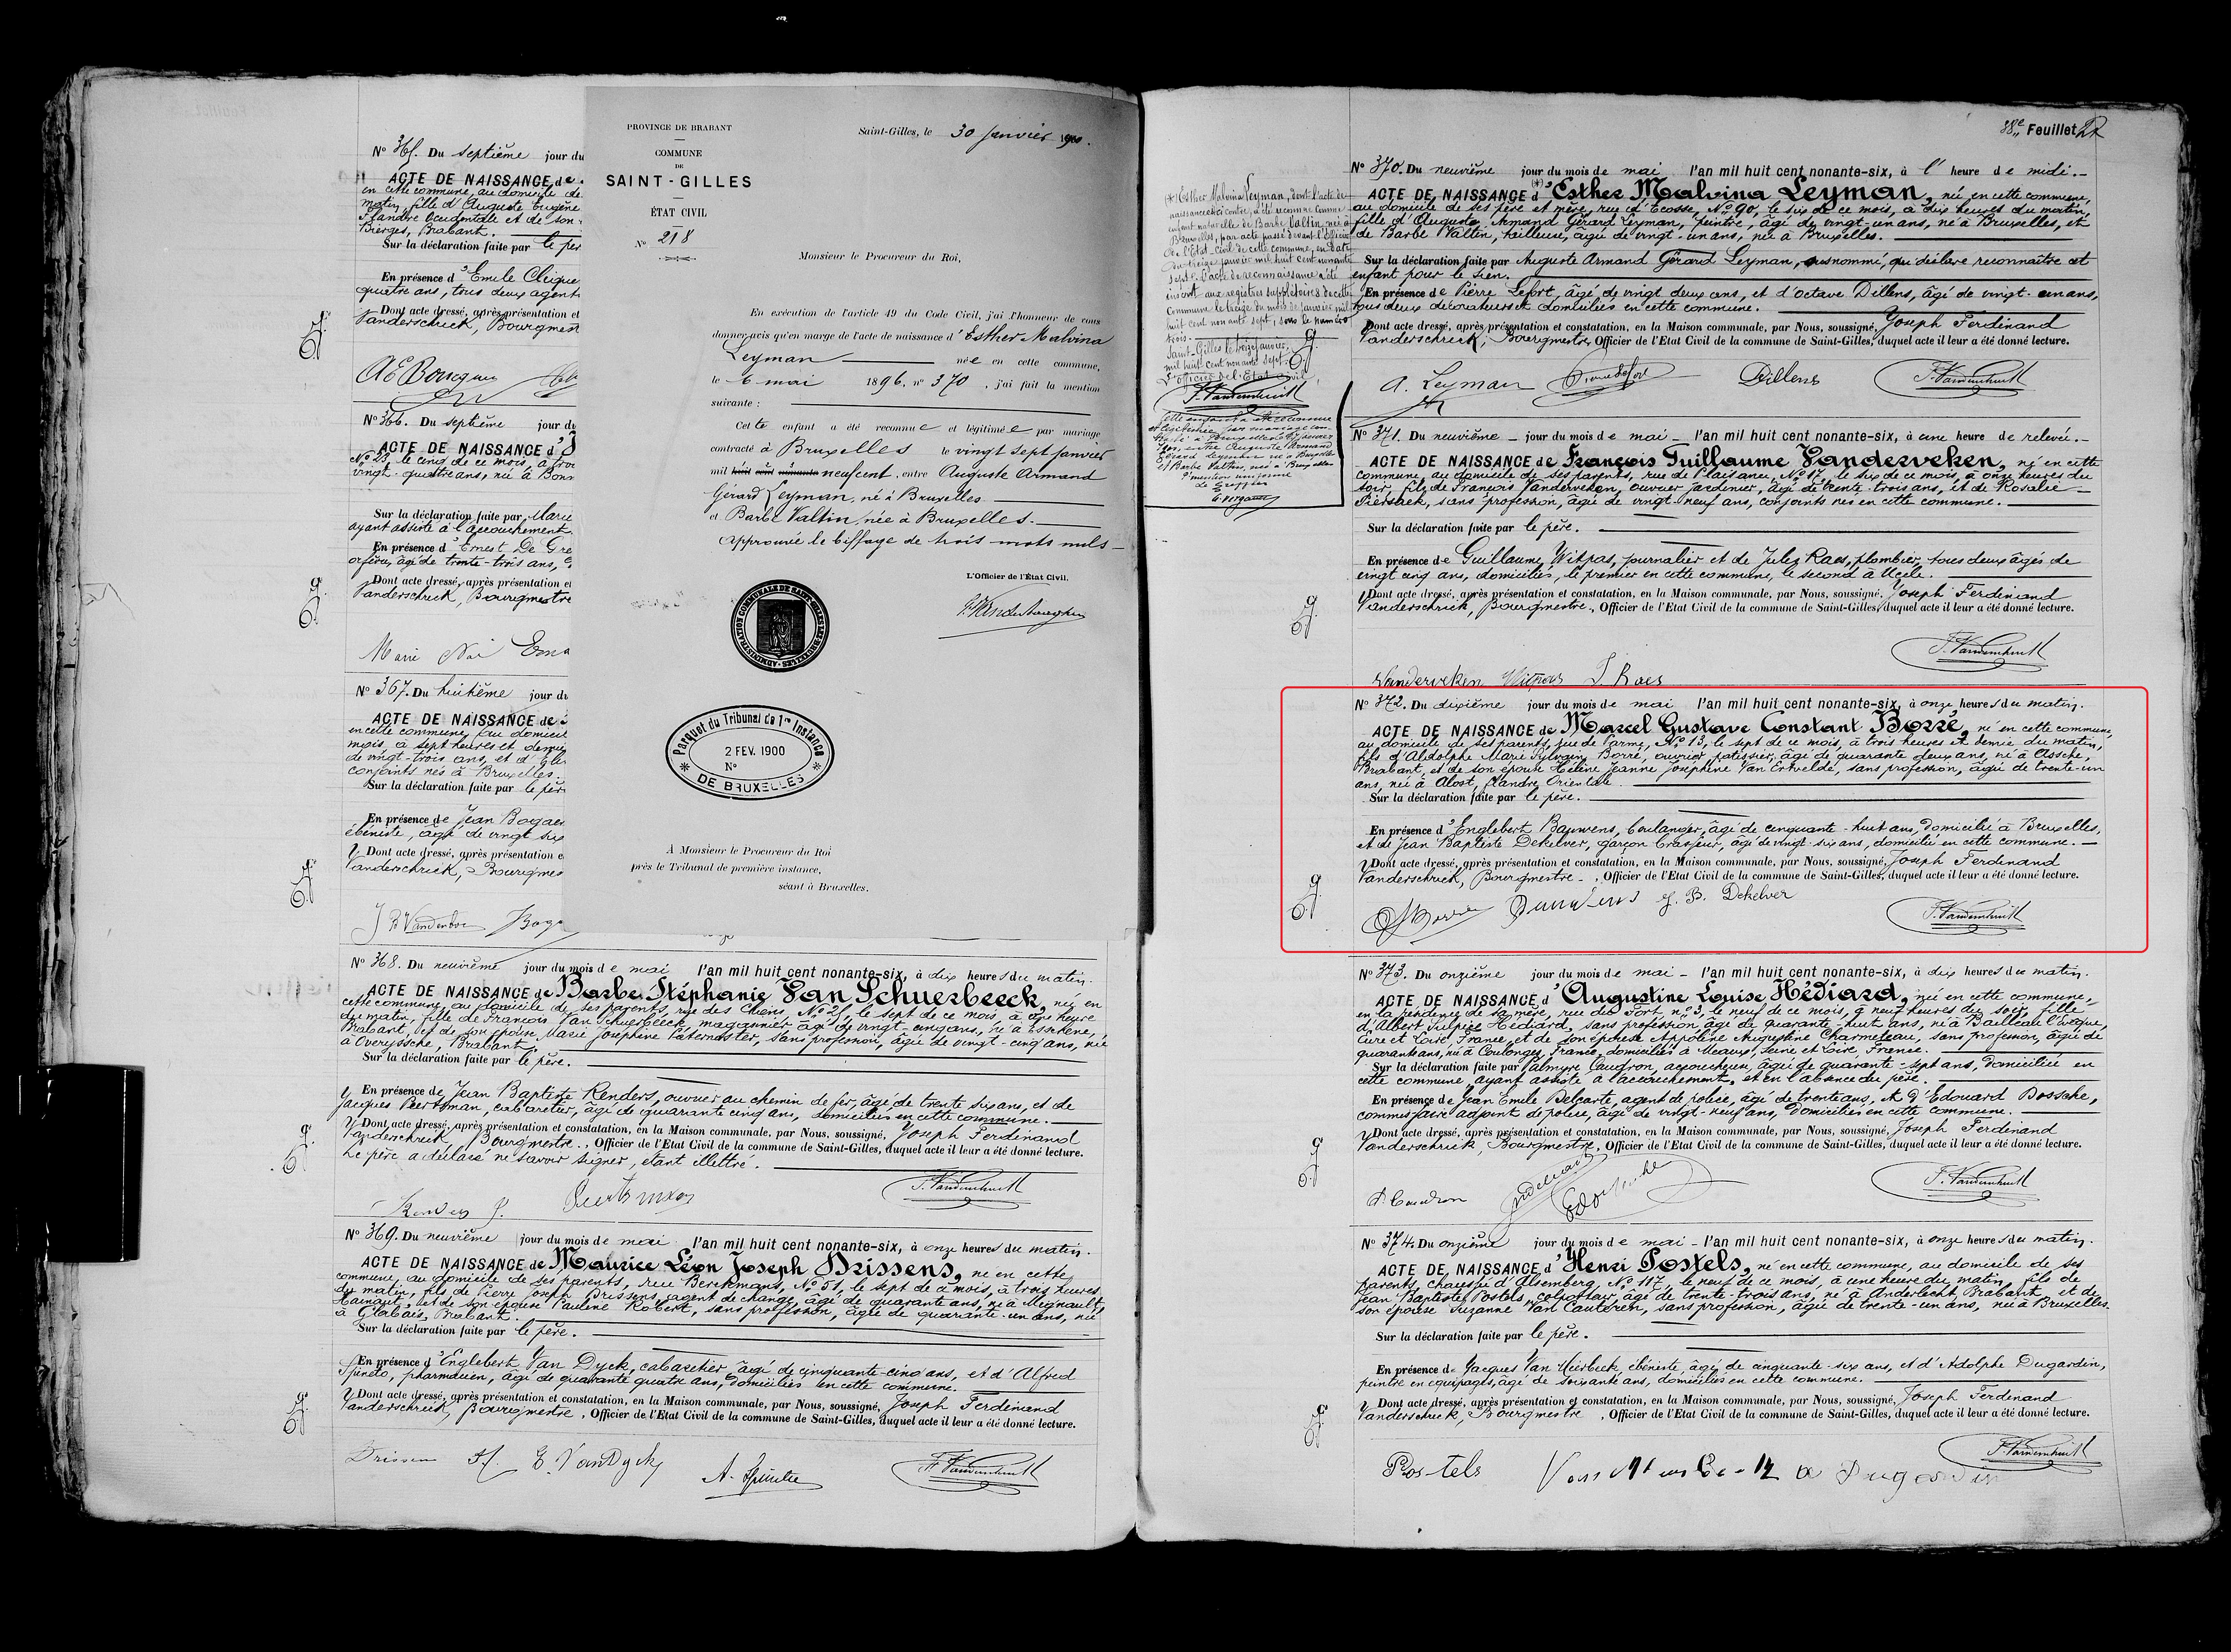 Nº 365. Du septième jour du
ACTE DE NAISSANCE de
en cette commune, au domicile de
matin, fille d'Auguste Eugène
Flandre Occidentale et de son
Bierges, Brabant.
Sur la déclaration faite par le pèr
En présence d'Emile
quatre ans, tous deux agent
Dont acte dressé, après présentation et
Vanderschrick, Bourgmest
Nº 366. Du septième jour du
ACTE DE NAISSANCE d'
Nº 23, le cinq de ce mois, à tro
vingt-quatre ans, née à Bonn
Sur la déclaration faite par Marie
ayant assisté à l'accouchement
En présence d'Ernest De Gre
orfèvre, âgé de trente-trois ans,
Dont acte dressé, après présentation et
Vanderschrick, Bourgmestre
Nº 367. Du huitième jour du
ACTE DE NAISSANCE de
en cette commune, au domicile
mois, à sept heures et demie
de vingt-trois ans, et d'
conjoints nés à Bruxelles.
Sur la déclaration faite par le père
En présence de Jean
ébéniste, âgé de vingt six
Dont acte dressé, après présentation e
Vanderschrick, Bourgmes
PROVINCE DE BRABANT
COMMUNE
DE
SAINT-GILLES
ÉTAT CIVIL
Nº 218
Saint-Gilles, le 30 Janvier 1900.
Monsieur le Procureur du Roi,
En exécution de l'article 49 du Code Civil, j'ai l'honneur de vous
donner avis qu'en marge de l'acte de naissance d'Esther Malvina
Leyman née en cette commune,
le 6 mai 1896, nº 370, j'ai fait la mention
suivante :
Cette enfant a été reconnue et légitimée par mariage
contracté à Bruxelles le vingt sept janvier
mil huit cent nonante neuf cent, entre Auguste Armand
Gérard Leyman, né à Bruxelles
et Barbe Valtin, née à Bruxelles.
Approuvée le biffage de trois mots nuls
L'Officier de l'État Civil,
ADMINISTRATION COMMUNALE DE SAINT-GILLES LEZ BRUXELLES
Parquet du Tribunal de 1re Instance
2 FEV. 1900
Nº
DE BRUXELLES
À Monsieur le Procureur du Roi
près le Tribunal de première instance,
séant à Bruxelles.
Nº 368. Du neuvième jour du mois de mai l'an mil huit cent nonante-six, à dix heures du matin.
ACTE DE NAISSANCE de Barbe Stéphanie Van Schuerbeeck, née en
cette commune, au domicile de ses parents, rue des Chiens, Nº 21, le sept de ce mois, à onze heure
du matin, fille de François Van Schuerbeeck, magasinier, âgé de vingt-cinq ans, né à Esschene,
Brabant, et de son épouse Marie Joséphine Paternoster, sans profession, âgée de vingt-cinq ans, née
à Overyssche, Brabant.
Sur la déclaration faite par le père.
En présence de Jean Baptiste Renders, ouvrier au chemin de fer, âgé de trente six ans, et de
Jacques Beertsman, cabaretier, âgé de quarante cinq ans, domiciliés en cette commune.
Dont acte dressé, après présentation et constatation, en la Maison communale, par Nous, soussigné, Joseph Ferdinand
Vanderschrick, Bourgmestre, Officier de l'Etat Civil de la commune de Saint-Gilles, duquel acte il leur a été donné lecture.
Le père a déclaré ne savoir signer, étant illettré.
Nº 369. Du neuvième jour du mois de mai l'an mil huit cent nonante-six, à onze heures du matin.
ACTE DE NAISSANCE de Maurice Léon Joseph Drissens, né en cette
commune, au domicile de ses parents, rue Berckmans, Nº 51, le sept de ce mois, à trois heures
du matin, fils de Pierre Joseph Drissens, agent de change, âgé de quarante ans, né à Mignault,
Hainaut, et de son épouse Pauline Robert, sans profession, âgée de quarante-un ans, née
à Glabais, Brabant.
Sur la déclaration faite par le père.
En présence d'Englebert Van Dyck, cabaretier, âgé de cinquante-cinq ans, et d'Alfred
Spinelo, pharmacien, âgé de quarante quatre ans, domiciliés en cette commune.
Dont acte dressé, après présentation et constatation, en la Maison communale, par Nous, soussigné, Joseph Ferdinand
Vanderschrick, Bourgmestre, Officier de l'Etat Civil de la commune de Saint-Gilles, duquel acte il leur a été donné lecture.
Drissens E. Van Dyck
38e Feuillet
Nº 370. Du neuvième jour du mois de mai l'an mil huit cent nonante-six, à l' heure de midi.
ACTE DE NAISSANCE d'Esther Malvina Leyman, née en cette commune,
au domicile de ses père et mère, rue d'Ecosse, Nº 90, le six de ce mois, à dix heures du matin,
fille d'Auguste Armand Gérard Leyman, peintre, âgé de vingt-un ans, né à Bruxelles, et
de Barbe Valtin, tailleuse, âgée de vingt-un ans, née à Bruxelles.
Sur la déclaration faite par Auguste Armand Gérard Leyman, susnommé, qui déclare reconnaître cet
enfant pour le sien.
En présence de Pierre Lefort, âgé de vingt deux ans, et d'Octave Dillens, âgé de vingt-un ans,
tous deux décorateurs et domiciliés en cette commune.
Dont acte dressé, après présentation et constatation, en la Maison communale, par Nous, soussigné, Joseph Ferdinand
Vanderschrick, Bourgmestre, Officier de l'Etat Civil de la commune de Saint-Gilles, duquel acte il leur a été donné lecture.
A. Leyman Dillens
Esther Malvina Leyman, dont l'acte de
naissance ci contre, a été reconnue comme
enfant naturelle de Barbe Valtin, née à
Bruxelles, par acte passé devant l'Officier
de l'Etat Civil de cette commune, en date
du treize janvier mil huit cent nonante
sept. L'acte de reconnaissance a été
inscrit aux registres supplétoires de cette
commune le treize du mois de janvier mil
huit cent nonante sept, sous le numéro
trois.
Saint-Gilles le treize janvier
mil huit cent nonante sept.
L'officier de l'Etat Civil,
Cette enfant a été reconnue
et légitimée par mariage con-
tracté à Bruxelles le 27 janvier
1900, entre Auguste Armand
Gérard Leyman né à Bruxelles
et Barbe Valtin, née à Bruxelles
Pr mention conforme
Le Greffier
Nº 371. Du neuvième jour du mois de mai l'an mil huit cent nonante-six, à une heure de relevée.
ACTE DE NAISSANCE de François Guillaume Vanderveken, né en cette
commune au domicile de ses parents, rue de Plaisance, Nº 17, le six de ce mois, à onze heures du
soir, fils de François Vanderveken, ouvrier jardinier, âgé de trente-trois ans, et de Rosalie
Pierschek, sans profession, âgée de vingt-neuf ans, conjoints nés en cette commune.
Sur la déclaration faite par le père.
En présence de Guillaume Witpas, journalier et de Jules Raes, plombier, tous deux âgés de
vingt cinq ans, domiciliés, le premier en cette commune, le second à Uccle.
Dont acte dressé, après présentation et constatation, en la Maison communale, par Nous, soussigné, Joseph Ferdinand
Vanderschrick, Bourgmestre, Officier de l'Etat Civil de la commune de Saint-Gilles, duquel acte il leur a été donné lecture.
Vanderveken Witpas J. Raes
Nº 372. Du dixième jour du mois de mai l'an mil huit cent nonante-six, à onze heures du matin.
ACTE DE NAISSANCE de Marcel Gustave Constant Borré, né en cette commune,
au domicile de ses parents, rue de Parme, Nº 13, le sept de ce mois, à trois heures et demie du matin,
fils d'Aldolphe Marie Sylvain Borré, ouvrier patissier, âgé de quarante deux ans, né à Assche,
Brabant, et de son épouse Hélène Jeanne Joséphine Van Ertvelde, sans profession, âgée de trente-un
ans, née à Alost, Flandre Orientale.
Sur la déclaration faite par le père.
En présence d'Englebert Bauwens, boulanger, âgé de cinquante-huit ans, domicilié à Bruxelles,
et de Jean Baptiste Dekelver, garçon brasseur, âgé de vingt-six ans, domicilié en cette commune.
Dont acte dressé, après présentation et constatation, en la Maison communale, par Nous, soussigné, Joseph Ferdinand
Vanderschrick, Bourgmestre, Officier de l'Etat Civil de la commune de Saint-Gilles, duquel acte il leur a été donné lecture.
Borré Bauwens J. B. Dekelver
Nº 373. Du onzième jour du mois de mai l'an mil huit cent nonante-six, à dix heures du matin.
ACTE DE NAISSANCE d'Augustine Louise Hédiard, née en cette commune,
en la résidence de sa mère, rue du Fort, nº 3, le neuf de ce mois, à neuf heures du soir, fille
d'Albert Sulpice Hédiard, sans profession, âgé de quarante-huit ans, né à Bailleau l'Evêque,
Eure et Loire, France, et de son épouse Appoline Augustine Charmeteau, sans profession, âgée de
quarante ans, née à Coulonges, France, domiciliés à Meaux, Seine et Loire, France.
Sur la déclaration faite par Palmyre Caudron, accoucheuse, âgée de quarante-sept ans, domiciliée en
cette commune, ayant assisté à l'accouchement, et en l'absence du père.
En présence de Jean Emile Delcarte, agent de police, âgé de trente ans, et d'Edouard Bossche,
commissaire adjoint de police, âgé de vingt-neuf ans, domiciliés en cette commune.
Dont acte dressé, après présentation et constatation, en la Maison communale, par Nous, soussigné, Joseph Ferdinand
Vanderschrick, Bourgmestre, Officier de l'Etat Civil de la commune de Saint-Gilles, duquel acte il leur a été donné lecture.
P. Caudron
Nº 374. Du onzième jour du mois de mai l'an mil huit cent nonante-six, à onze heures du matin.
ACTE DE NAISSANCE d'Henri Postels, né en cette commune, au domicile de ses
parents, chaussée d'Alsemberg, Nº 117, le neuf de ce mois, à une heure du matin, fils de
Jean Baptiste Postels, colporteur, âgé de trente-trois ans, né à Anderlecht, Brabant, et de
son épouse Suzanne Van Cauteren, sans profession, âgée de trente-un ans, née à Bruxelles.
Sur la déclaration faite par le père.
En présence de Jacques Van Mierbeek, ébéniste, âgé de cinquante-six ans, et d'Adolphe Dugardin,
peintre en équipages, âgé de soixante ans, domiciliés en cette commune.
Dont acte dressé, après présentation et constatation, en la Maison communale, par Nous, soussigné, Joseph Ferdinand
Vanderschrick, Bourgmestre, Officier de l'Etat Civil de la commune de Saint-Gilles, duquel acte il leur a été donné lecture.
Postels